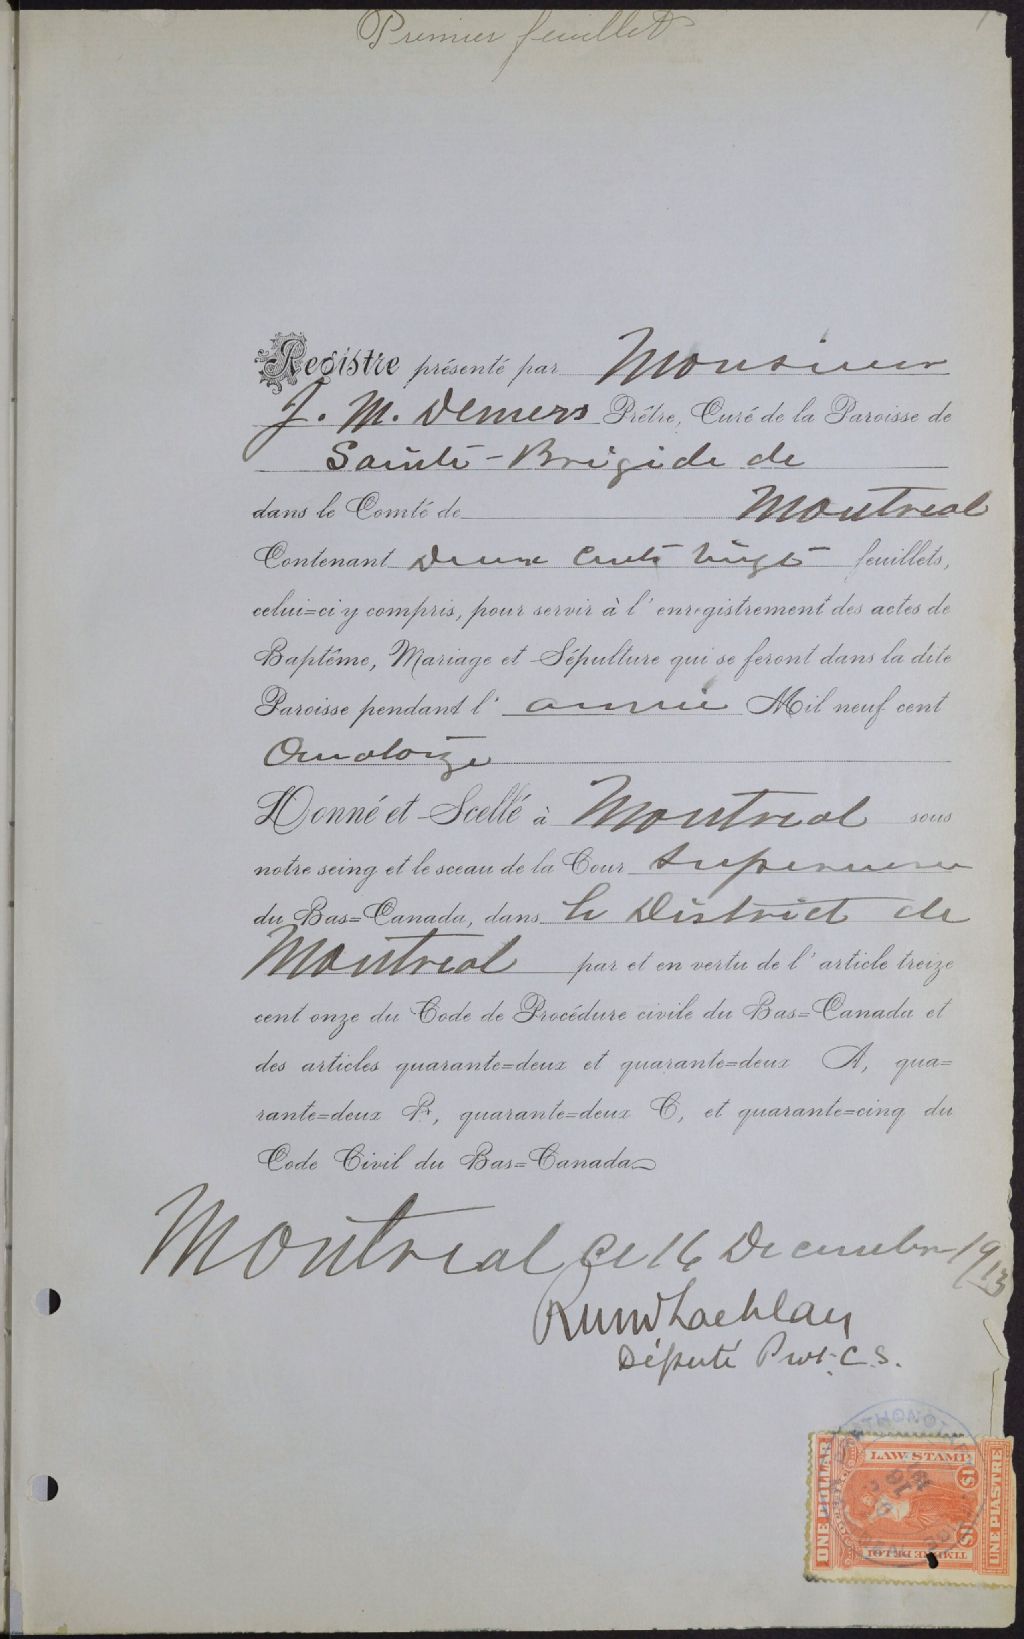 Premier feuillet
Registre présenté par Monsieur
J. M. Demers Prêtre, Curé de la Paroisse de
Sainte-Brigide de
dans le Comté de Montreal
Contenant Deux Cents Vingt feuillets,
celui=ci y compris, pour servir à l'enregistrement des actes de
Baptême, Mariage et Sépulture qui se feront dans la dite
Paroisse pendant l'année Mil neuf cent
Quatorze
Donné et Scellé à Montreal sous
notre seing et le sceau de la Cour Superieure
du Bas=Canada, dans le District de
Montreal par et en vertu de l'article treize
cent onze du Code de Procédure civile du Bas=Canada et
des articles quarante=deux et quarante=deux A, qua=
rante=deux B, quarante=deux C, et quarante=cinq du
Code Civil du Bas=Canada
Montreal Ce 16 Decembre 1913
Député Prot. C. S.
ONE DOLLAR
LAW STAMP
$1 $1
TIMBRE DE LOI
UNE PIASTRE